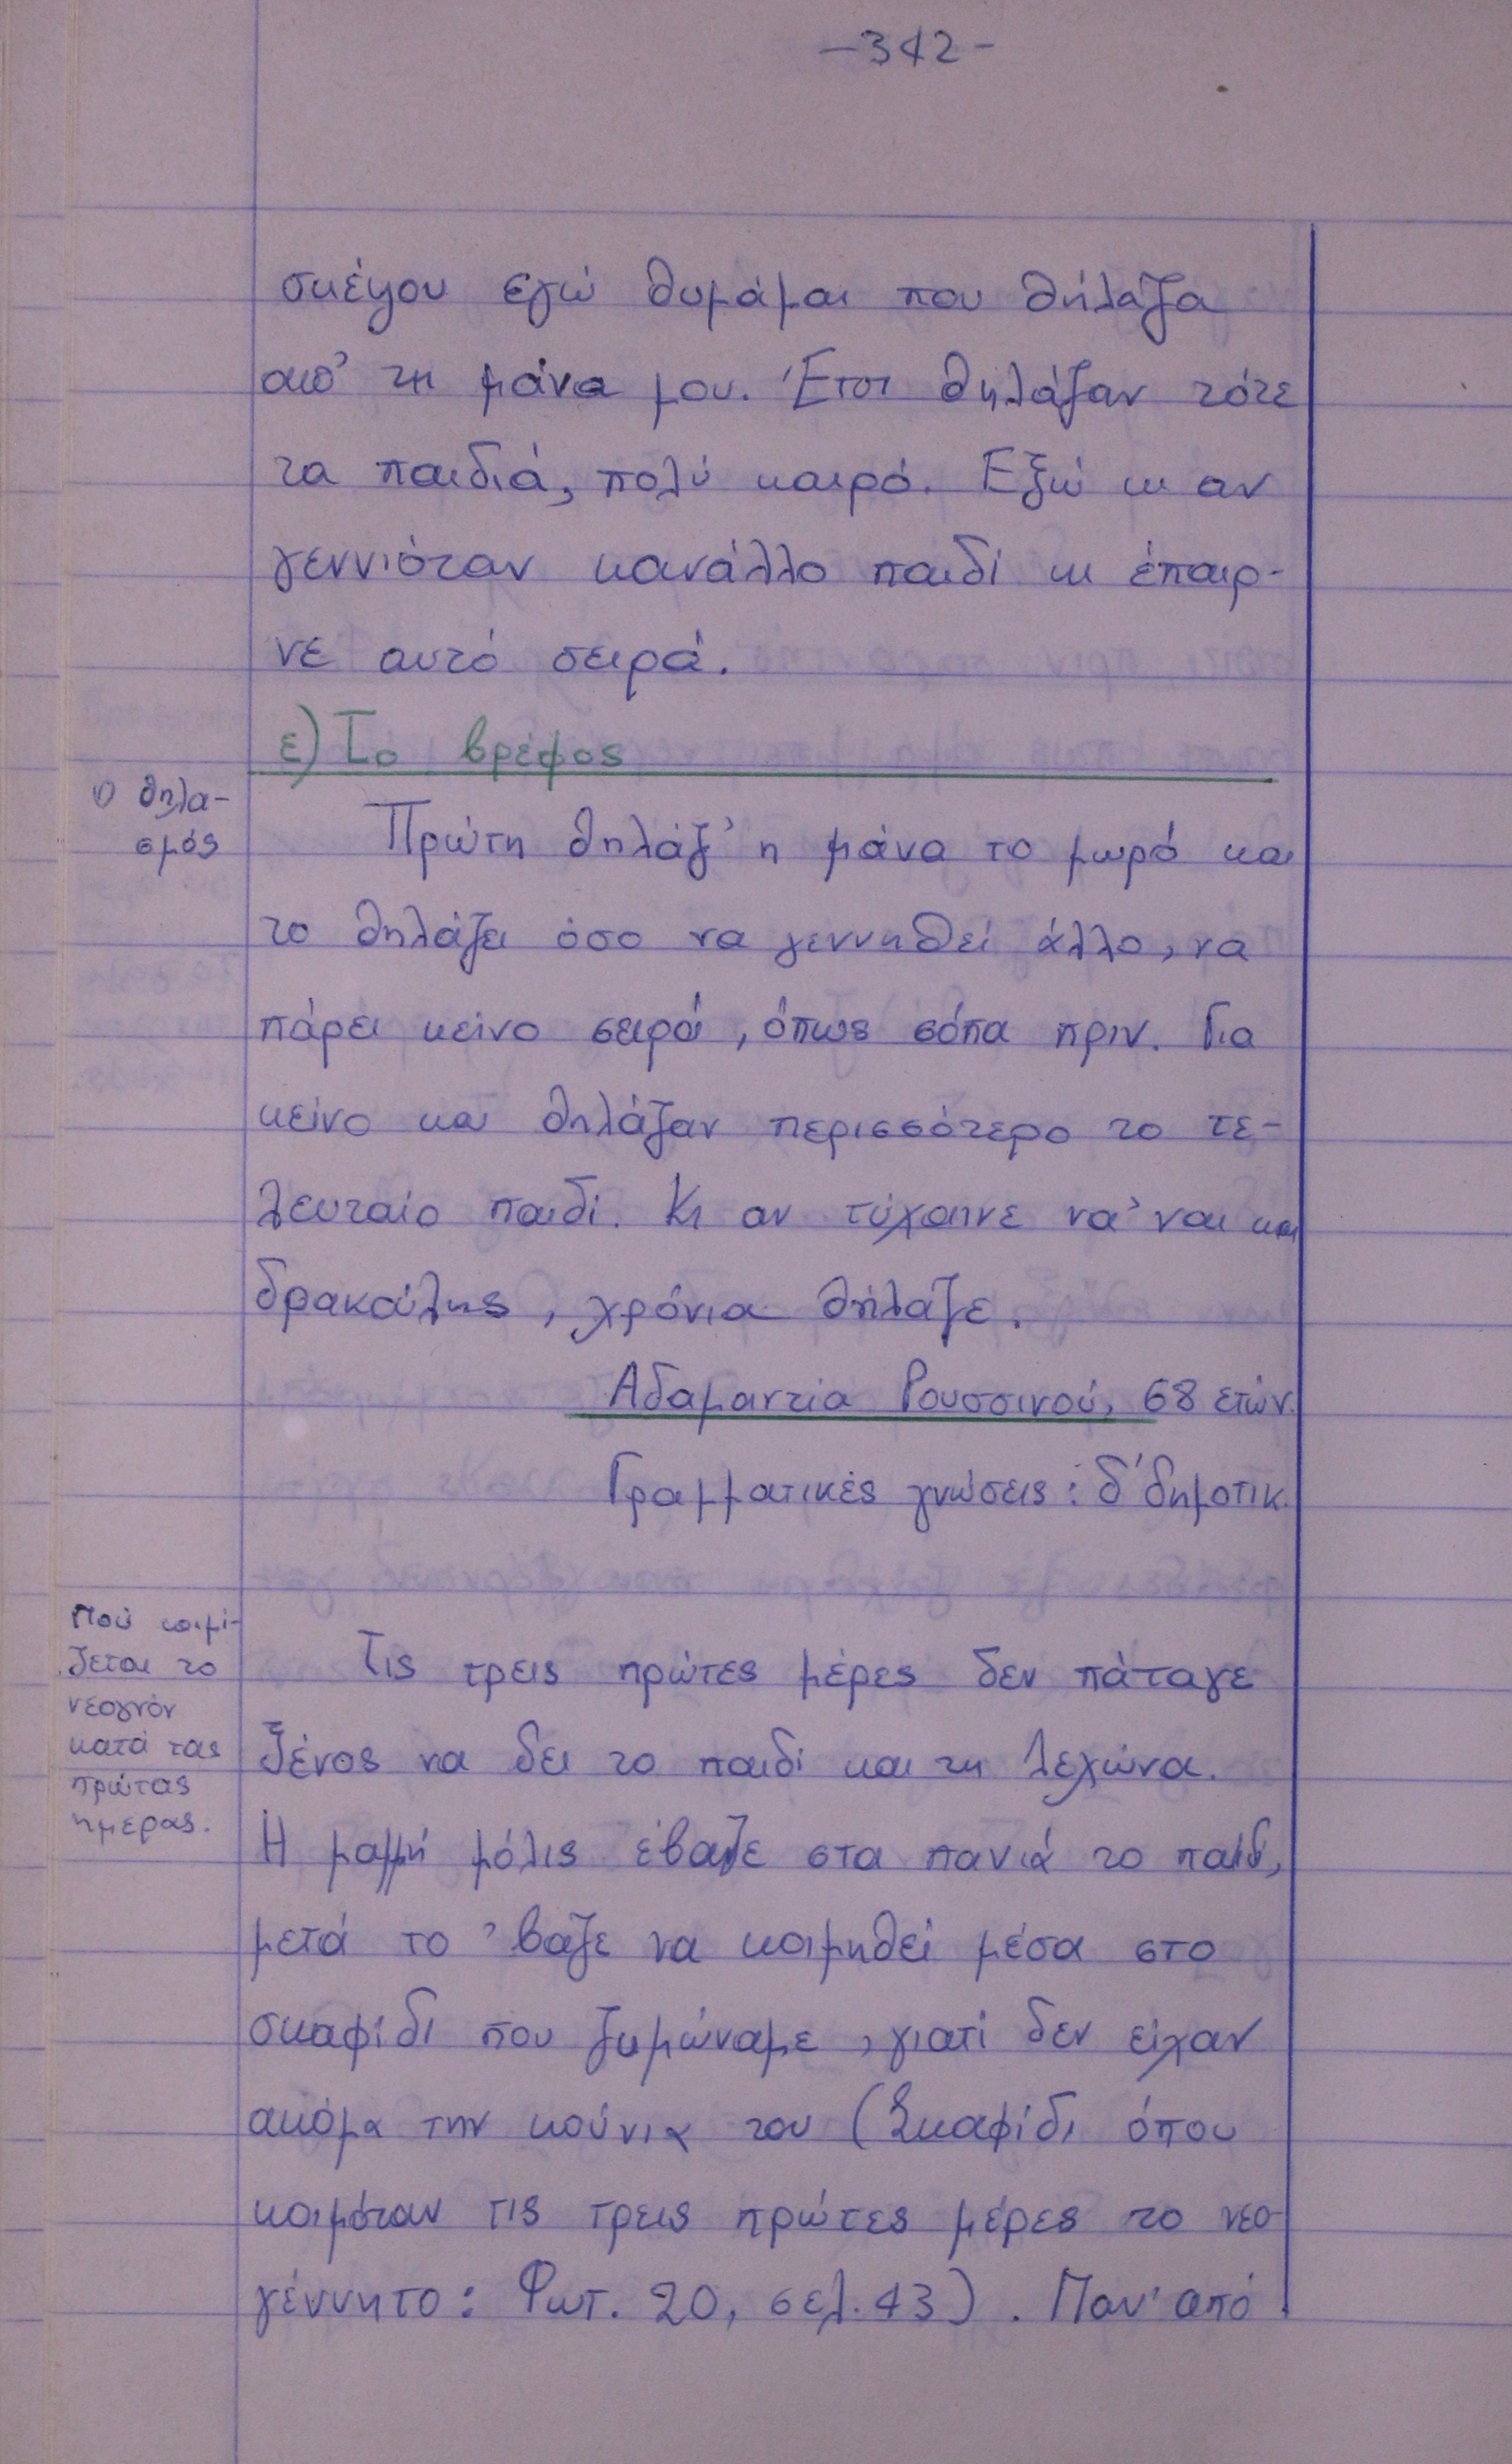 -342-
σκέψου εγώ θυμάμαι που θήλαζα
απ' τη μάνα μου. Έτσι θηλάζαν τότε
τα παιδιά, πολύ καιρό. Εξώ κι αν
γεννιόταν κανάλλο παιδί κι έπαιρ-
νε αυτό σειρά.
ε) Το βρέφος
1) θηλα-
σμός
Πρώτη θηλάζ' η μάνα το μωρό και
το θηλάζει όσο να γεννηθεί άλλο, να
πάρει κείνο σειρά, όπως σόπα πριν. Για
κείνο και θηλάζαν περισσότερο το τε-
λευταίο παιδί. Κι αν τύχαινε νά'ναι και
δρακούλης, χρόνια θήλαζε.
Αδαμαντία Ρουσσινού, 68 ετών.
Γραμματικές γνώσεις: δ' δημοτικ.
Πού κοιμί-
ζεται το
νεογνόν
κατά τας
πρώτας
ημέρας.
Τις τρεις πρώτες μέρες δεν πάταγε
ξένος να δει το παιδί και τη λεχώνα.
Η μαμμή μόλις έβαζε στα πανιά το παιδ,
μετά το 'βαζε να κοιμηθεί μέσα στο
σκαφίδι που ζυμώναμε, γιατί δεν είχαν
ακόμα την κούνια του (Σκαφίδι όπου
κοιμόταν τις τρεις πρώτες μέρες το νεο-
γέννητο: Φωτ. 20, σελ. 43). Παν' από